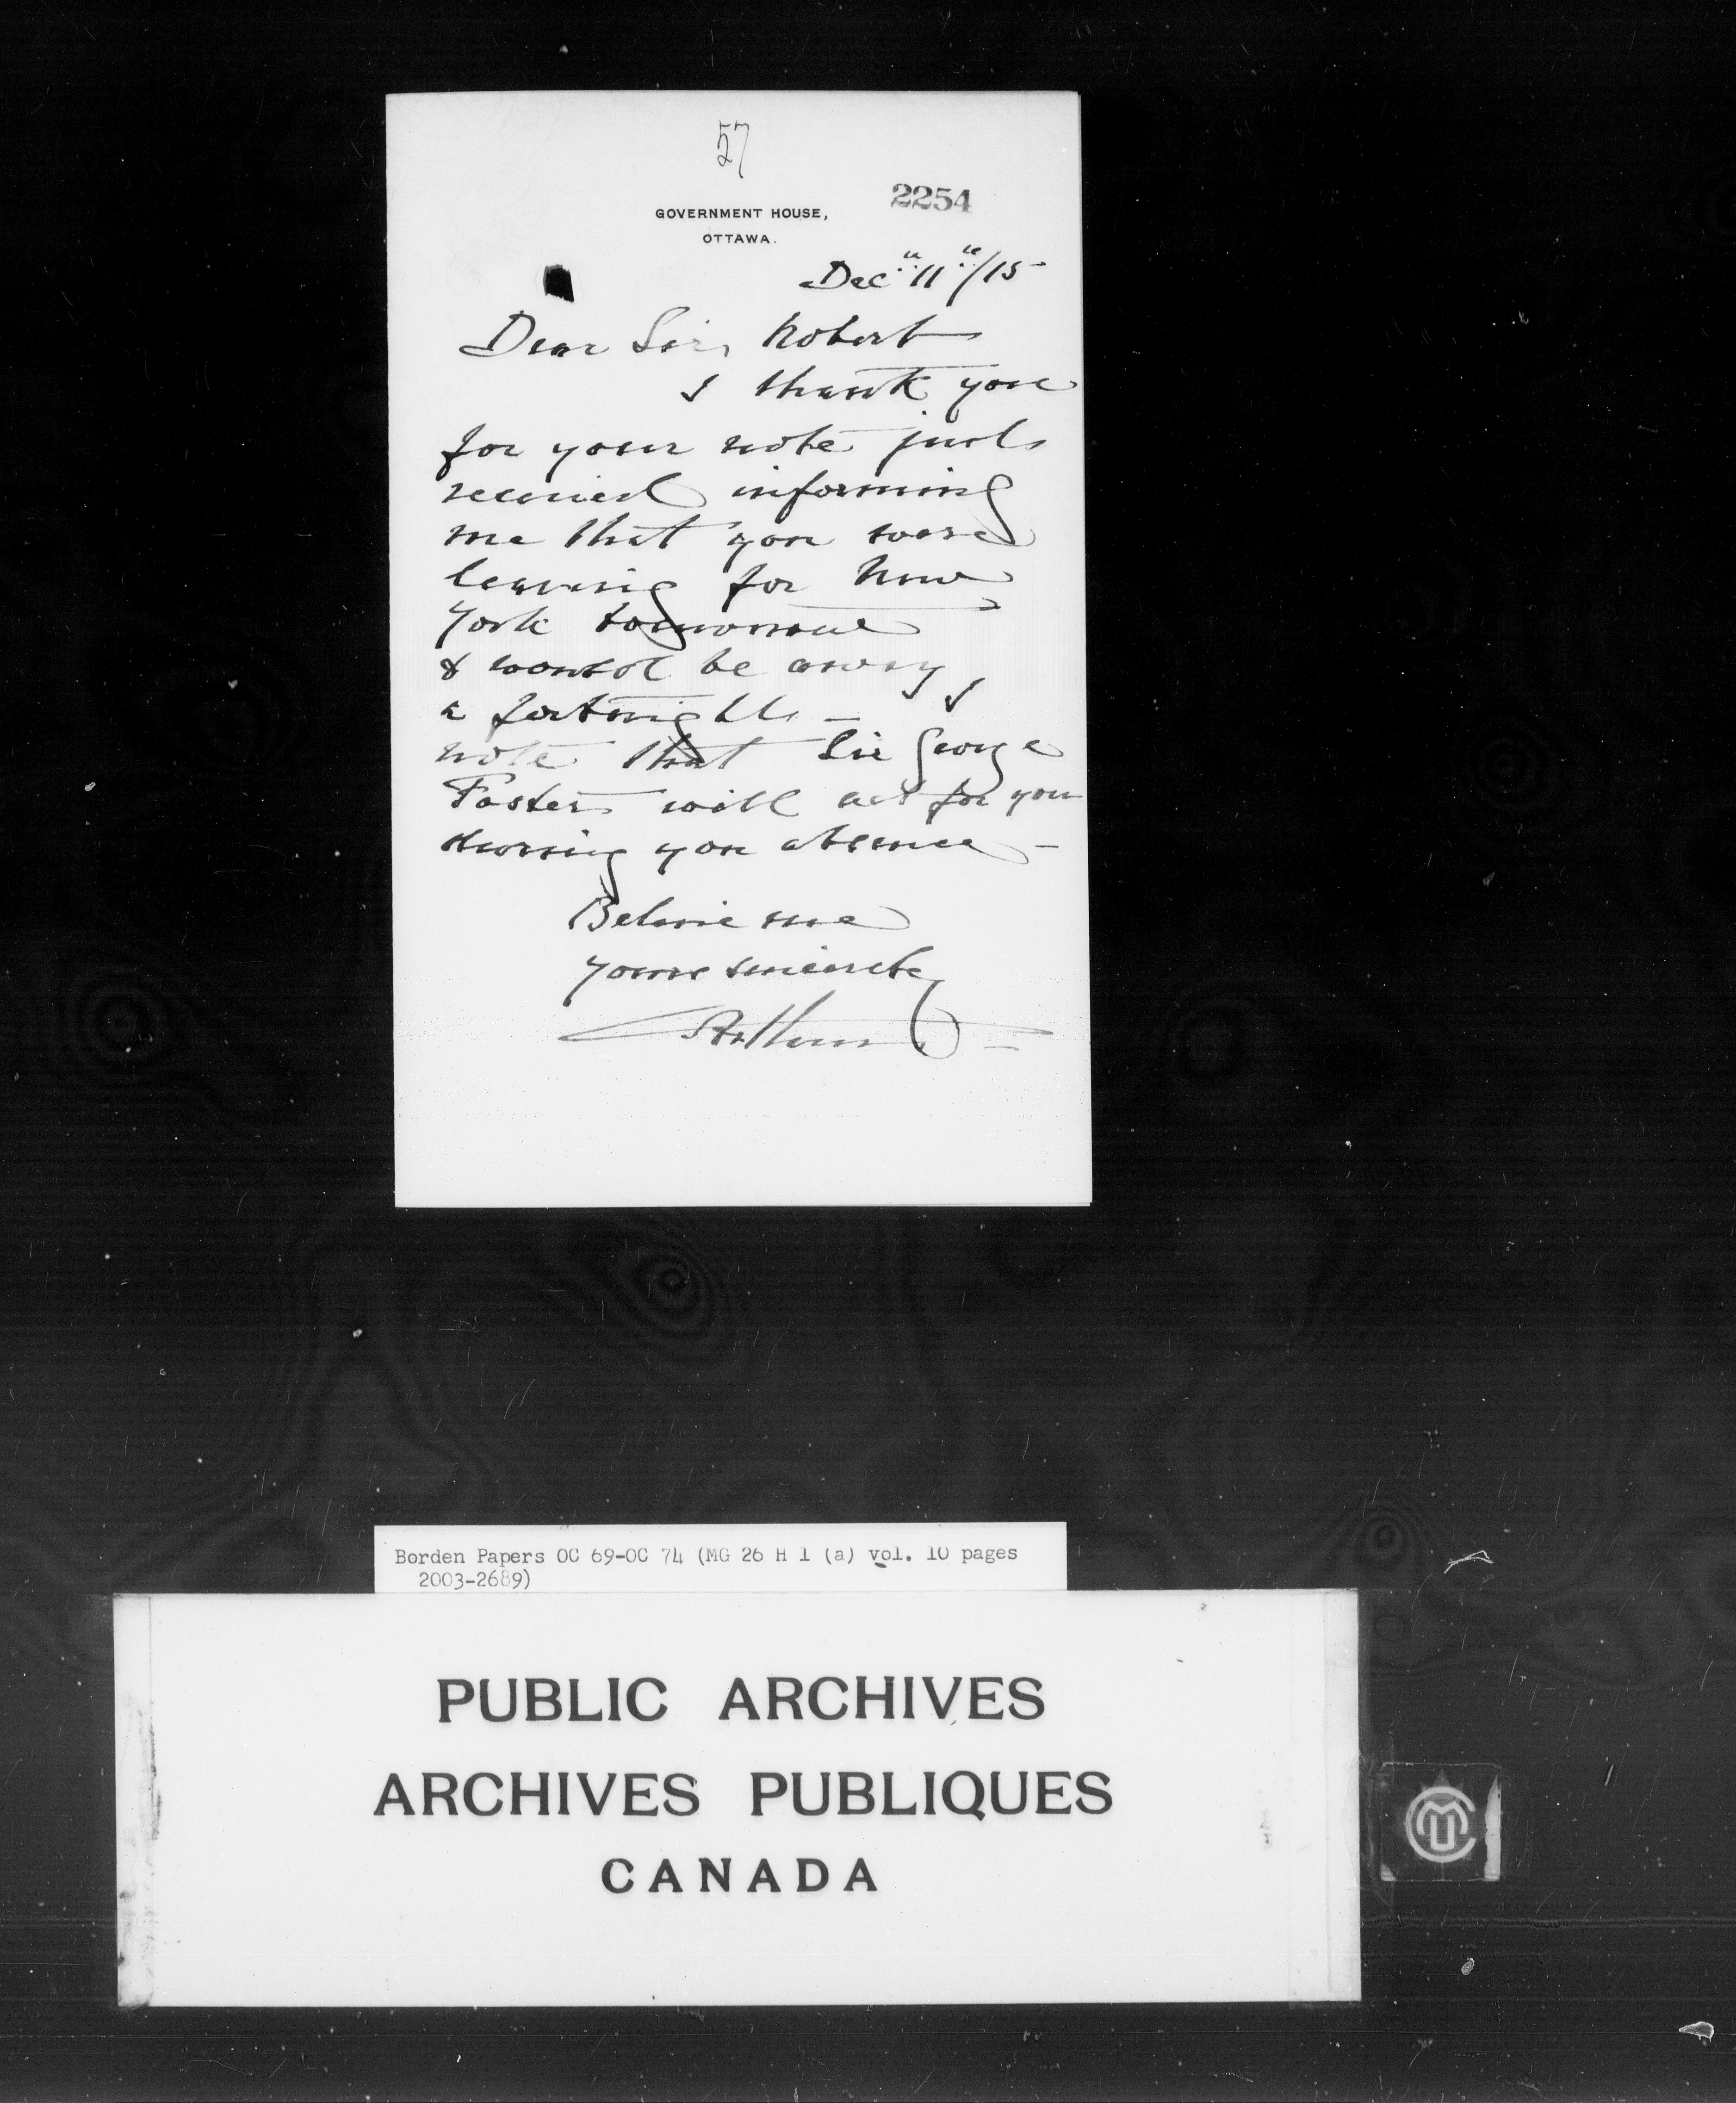 57
2254
GOVERNMENT HOUSE,
OTTAWA.
Dec 11/15
Dear Sir Robert
I thank you
for your note just
received informing
me that you were
leaving for New
York tomorrow
& would be away
a fortnight — I
note that Sir George
Foster will act for you
during you absence —
Believe me
yours sincerely
Arthur
Borden Papers OC 69-OC 74 (MG 26 H 1 (a) vol. 10 pages
2003-2689)
PUBLIC ARCHIVES
ARCHIVES PUBLIQUES
CANADA